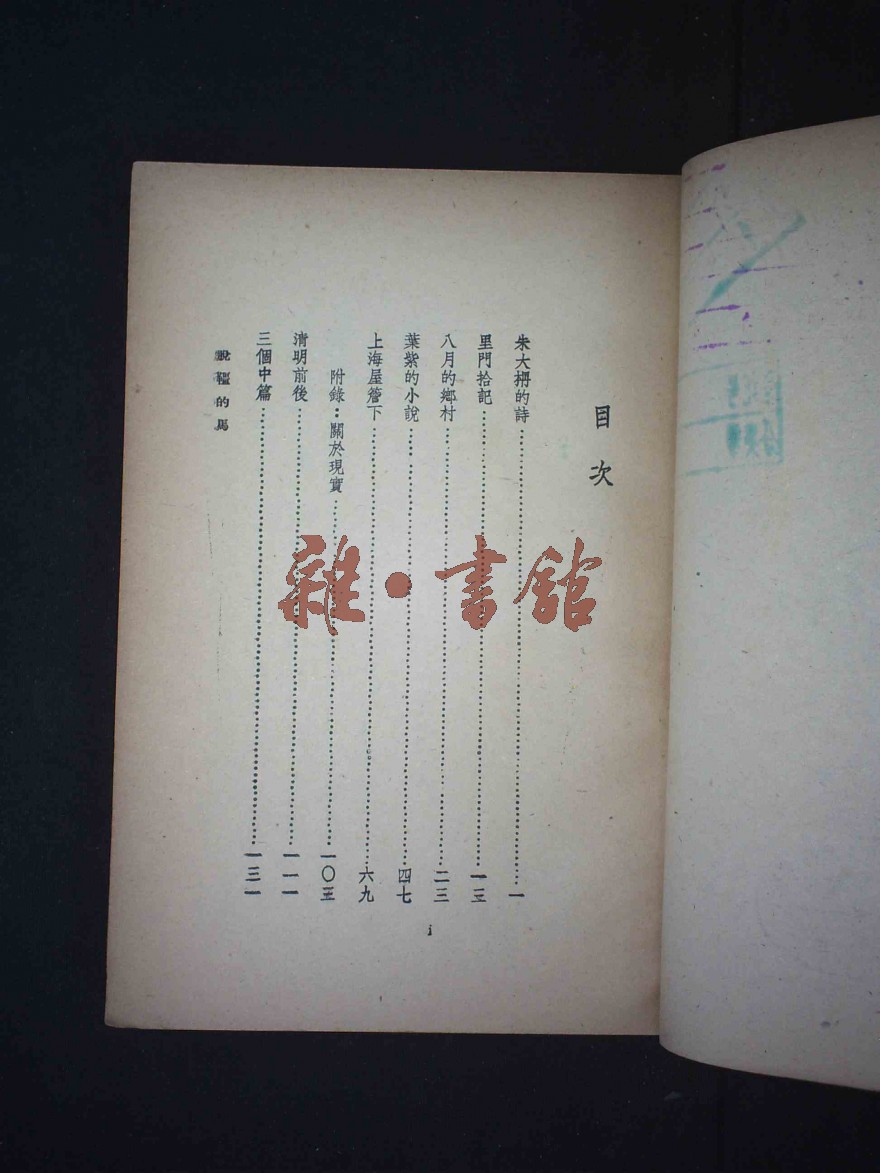 目次
朱大枬的詩……一
里門拾記……一三
八月的鄉村……二三
葉紫的小說……四七
上海屋簷下……六九
附錄：關於現實……一〇三
清明前後……一一一
三個中篇……一三一
脫韁的馬
i
雜·書館